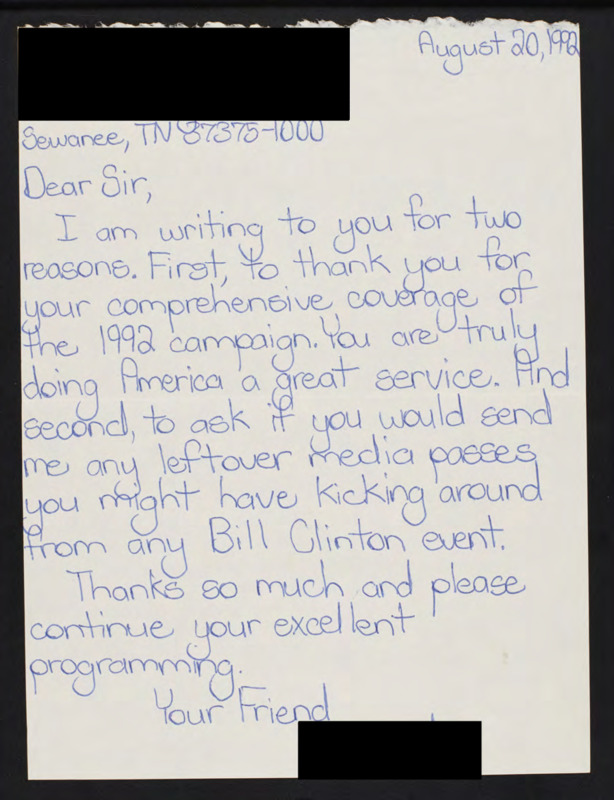 August 20, 1992
Sewanee, TN 87375-1000
Dear Sir,
I am writing to you for two
reasons. First, to thank you for
your comprehensive coverage of
the 1992 campaign. You are truly
doing America a great service. And
second, to ask if you would send
me any leftover media passes
you might have kicking around
from any Bill Clinton event.
Thanks so much and please
continue your excellent
programming.
Your Friend